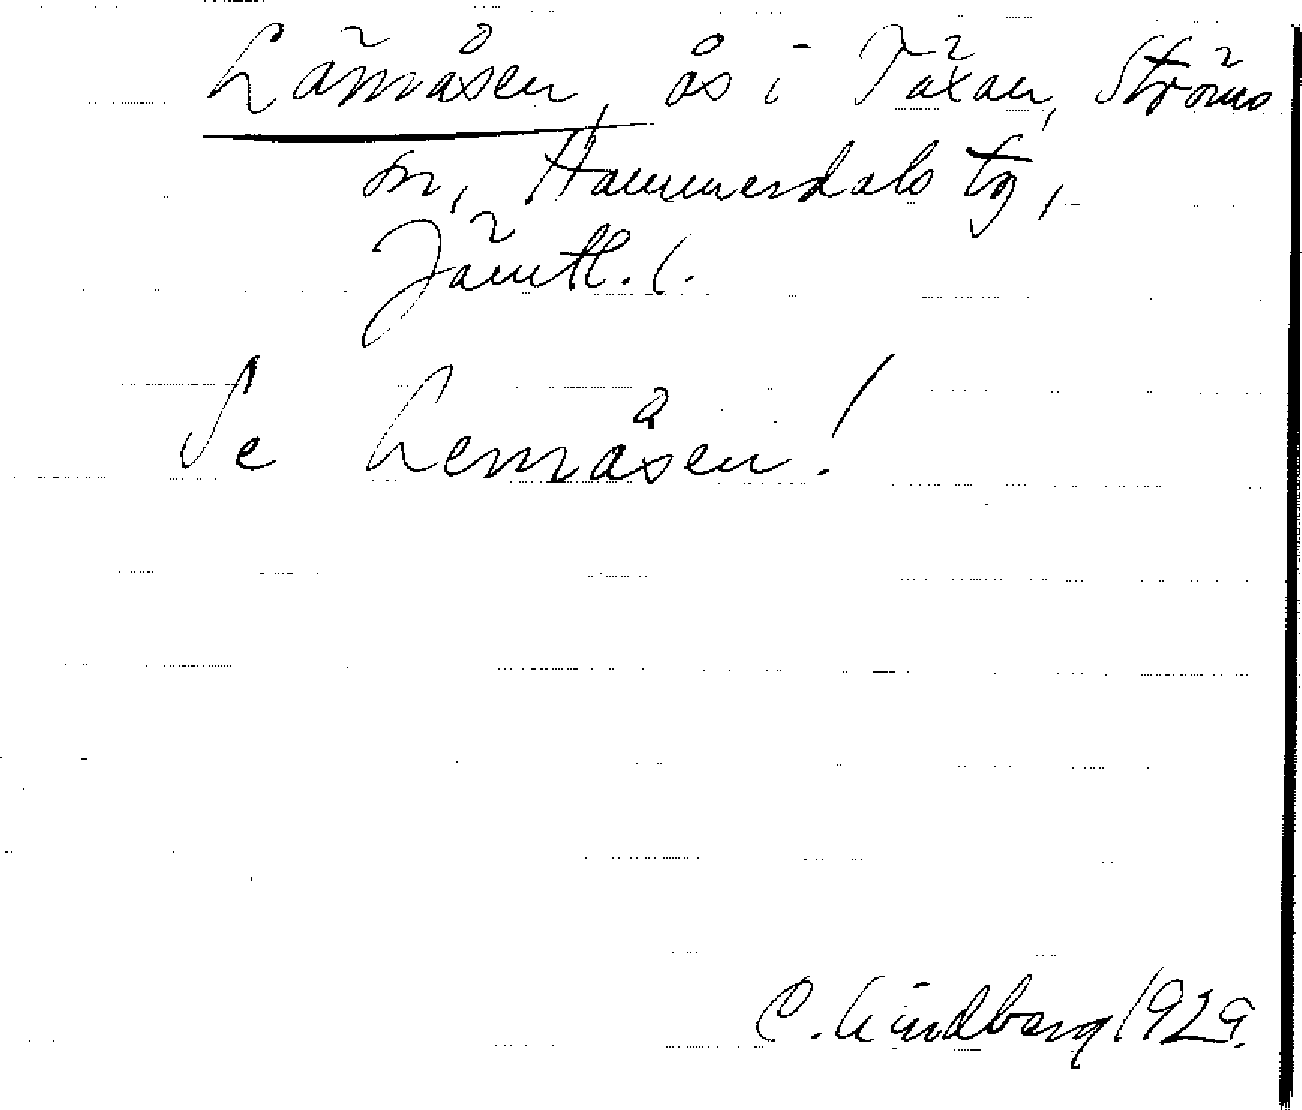 Lämåsen, ås i Täxan, Ströms
sn, Hammerdals tg,
Jämtl. l.
Se Lemåsen!
C. Lindberg 1929.